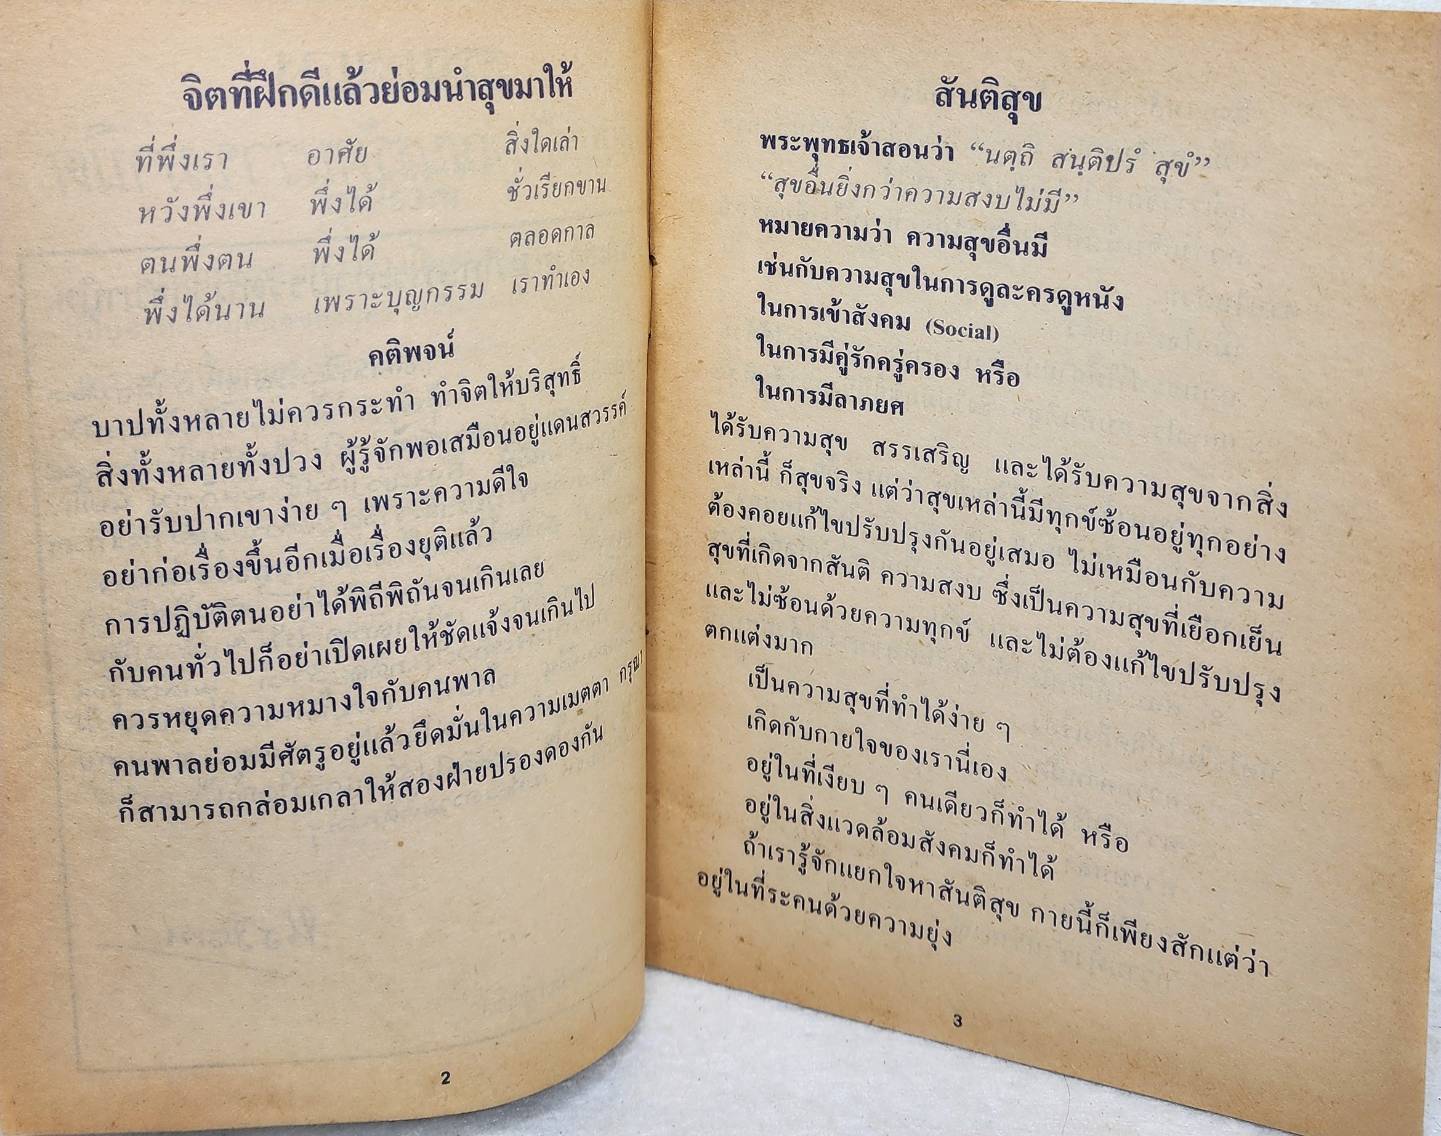 จิตที่ฝึกดีแล้วย่อมนำสุขมาให้
ที่พึ่งเรา อาศัย สิ่งใดเล่า
หวังพึ่งเขา พึ่งได้ ชั่วเรียกขาน
ตนพึ่งตน พึ่งได้ ตลอดกาล
พึ่งได้นาน เพราะบุญกรรม เราทำเอง
คติพจน์
บาปทั้งหลายไม่ควรกระทำ ทำจิตให้บริสุทธิ์
สิ่งทั้งหลายทั้งปวง ผู้รู้จักพอเสมือนอยู่แดนสวรรค์
อย่ารับปากเขาง่าย ๆ เพราะความดีใจ
อย่าก่อเรื่องขึ้นอีกเมื่อเรื่องยุติแล้ว
การปฏิบัติตนอย่าได้พิถีพิถันจนเกินเลย
กับคนทั่วไปก็อย่าเปิดเผยให้ชัดแจ้งจนเกินไป
ควรหยุดความหมางใจกับคนพาล
คนพาลย่อมมีศัตรูอยู่แล้วยึดมั่นในความเมตตา กรุณา
ก็สามารถกล่อมเกลาให้สองฝ่ายปรองดองกัน
2
สันติสุข
พระพุทธเจ้าสอนว่า “นตฺถิ สนฺติปรํ สุขํ”
“สุขอื่นยิ่งกว่าความสงบไม่มี”
หมายความว่า ความสุขอื่นมี
เช่นกับความสุขในการดูละครดูหนัง
ในการเข้าสังคม (Social)
ในการมีคู่รักครู่ครอง หรือ
ในการมีลาภยศ
ได้รับความสุข สรรเสริญ และได้รับความสุขจากสิ่ง
เหล่านี้ ก็สุขจริง แต่ว่าสุขเหล่านี้มีทุกข์ซ้อนอยู่ทุกอย่าง
ต้องคอยแก้ไขปรับปรุงกันอยู่เสมอ ไม่เหมือนกับความ
สุขที่เกิดจากสันติ ความสงบ ซึ่งเป็นความสุขที่เยือกเย็น
และไม่ซ้อนด้วยความทุกข์ และไม่ต้องแก้ไขปรับปรุง
ตกแต่งมาก
เป็นความสุขที่ทำได้ง่าย ๆ
เกิดกับกายใจของเรานี่เอง
อยู่ในที่เงียบ ๆ คนเดียวก็ทำได้ หรือ
อยู่ในสิ่งแวดล้อมสังคมก็ทำได้
ถ้าเรารู้จักแยกใจหาสันติสุข กายนี้ก็เพียงสักแต่ว่า
อยู่ในที่ระคนด้วยความยุ่ง
3